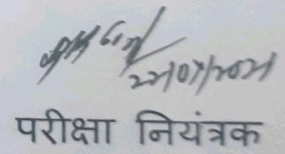 22/07/2021
परीक्षा नियंत्रक